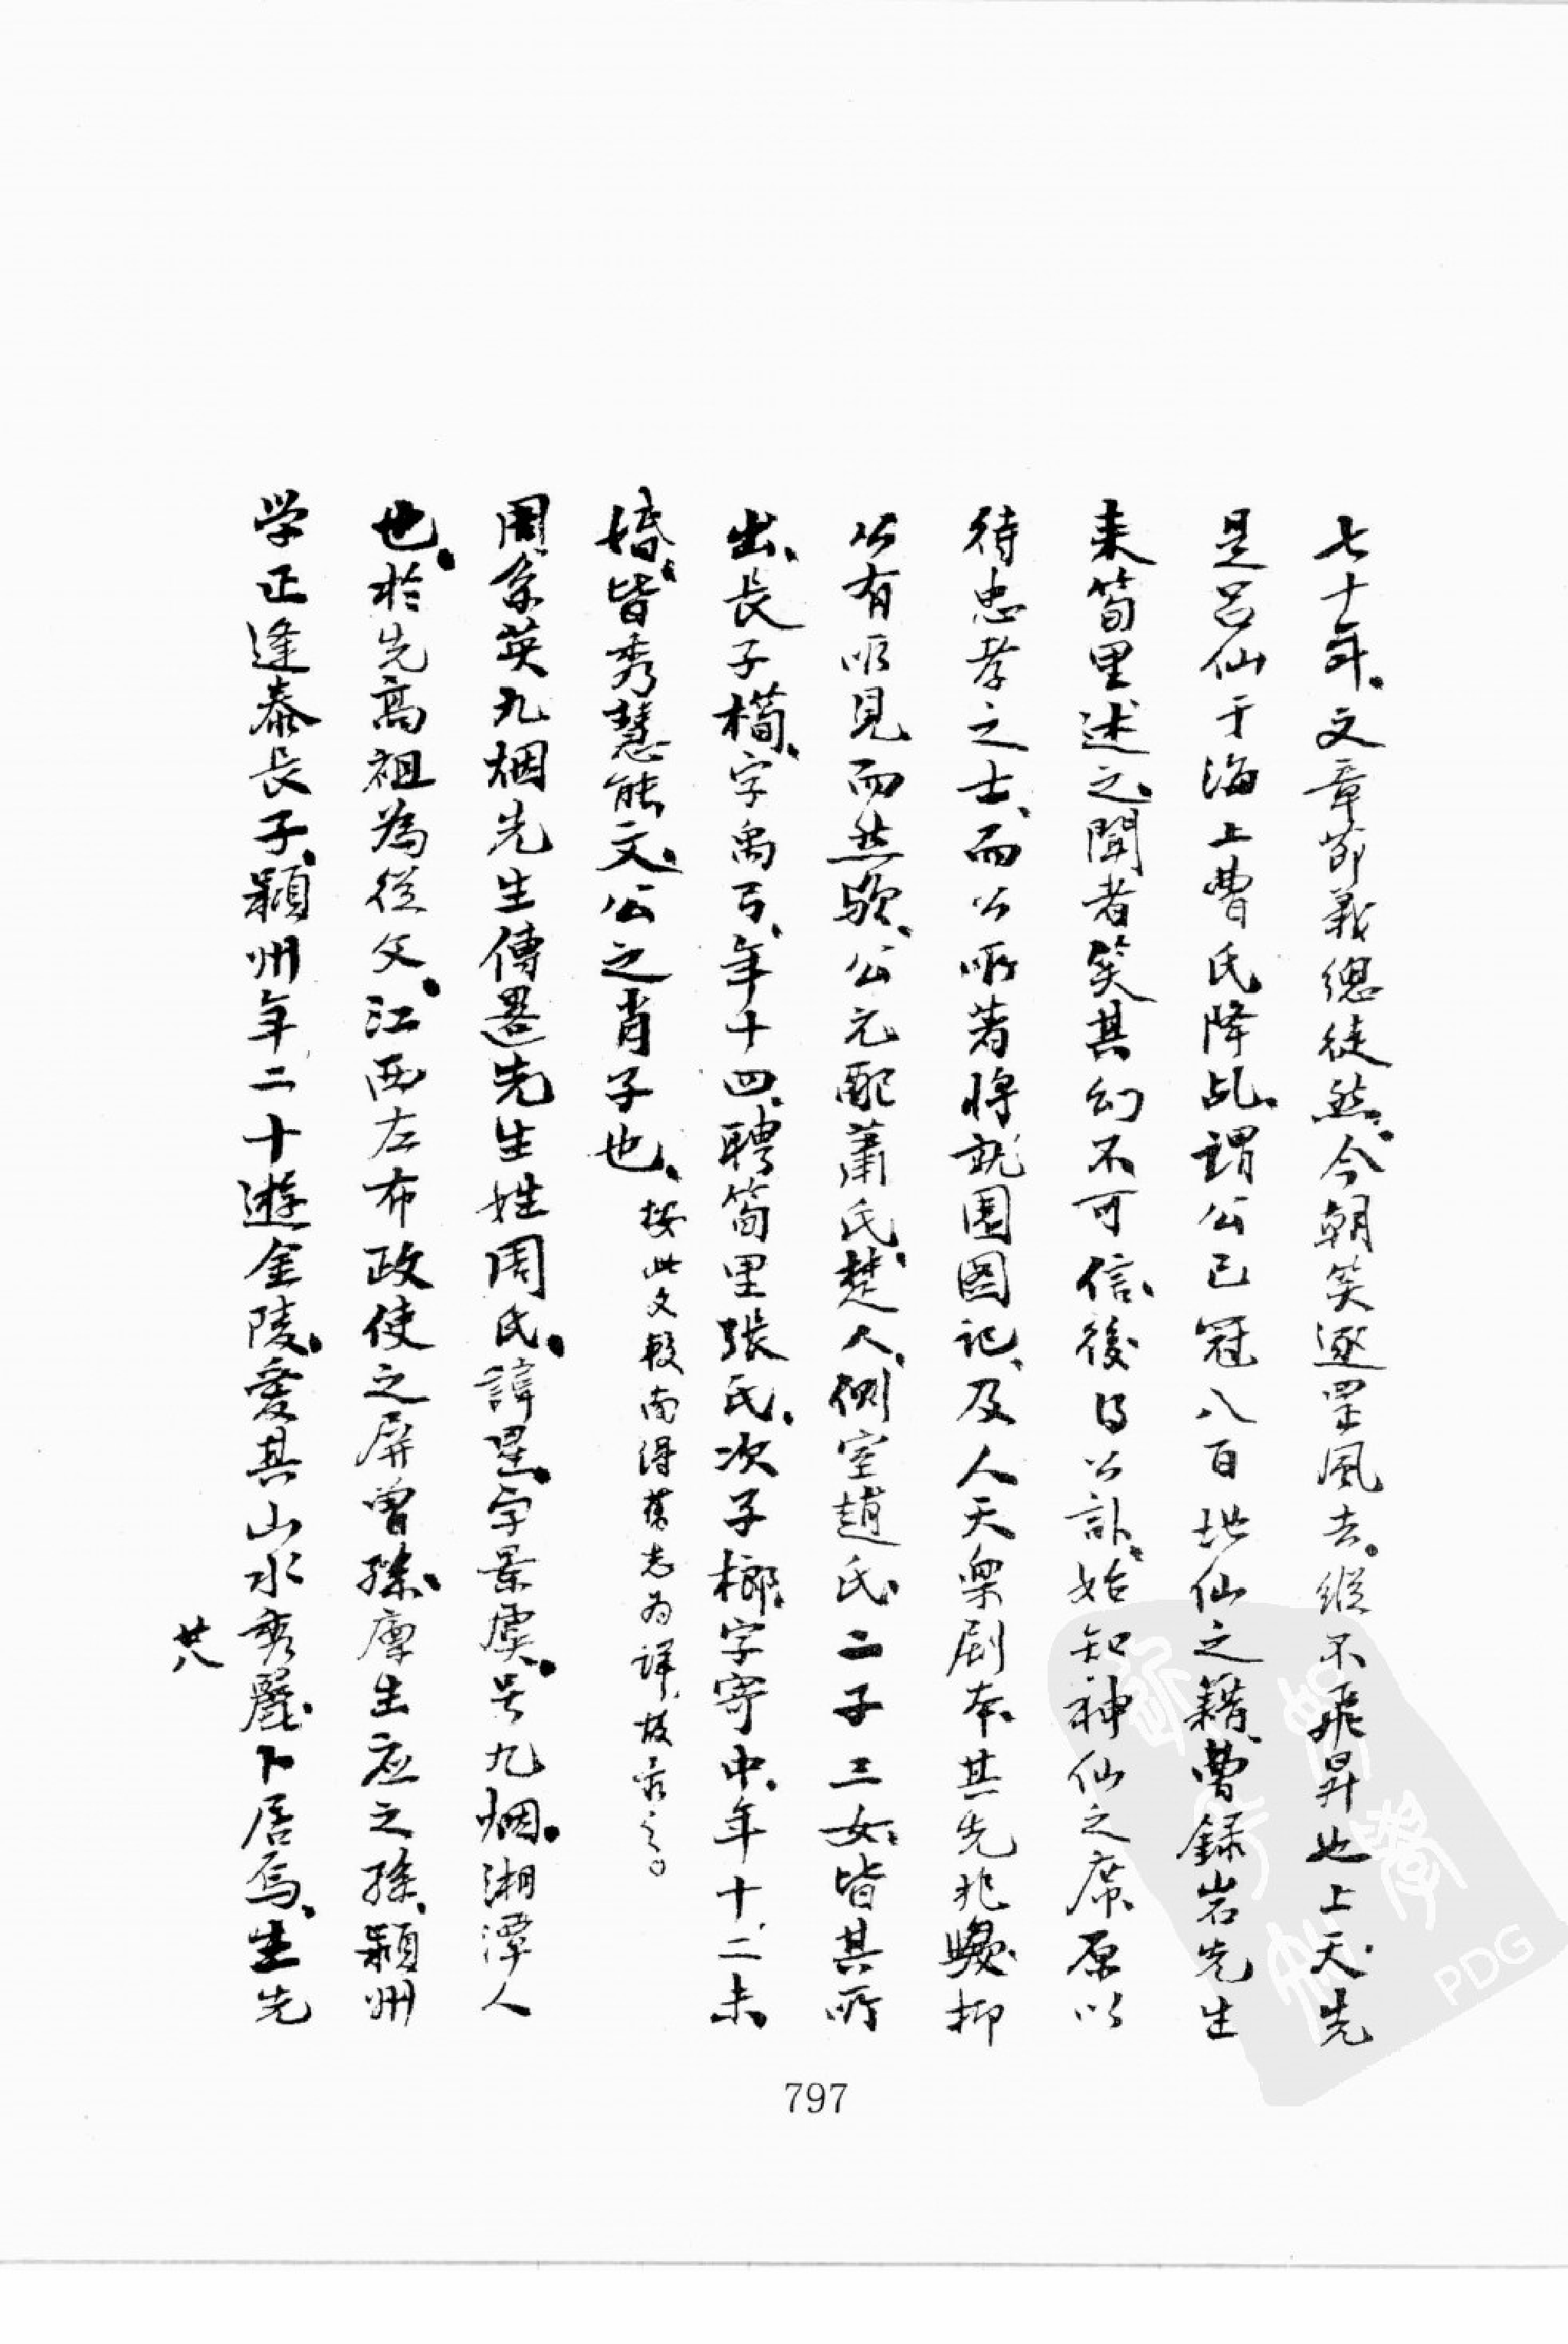 七十年、文章節義總徒然、今朝笑逐罡風去。縱不飛昇也上天、先
是呂仙于海上曹氏降乩、謂公已冠八百地仙之籍、曹錄岩先生
来筍里述之、聞者笑其幻不可信、後得公訃、始知神仙之席、原以
待忠孝之士、而公所著將就園圖記、及人天樂剧本、其先兆歟、抑
公有所見而然歟、公元配蕭氏、楚人、側室趙氏、二子三女、皆其所
出、長子橚、字禹弓、年十四、聘筍里張氏、次子榔、字寄中、年十二、未
婚、皆秀慧能文、公之肖子也、按此文較南潯舊志为詳、故录之。
周系英九烟先生傳畧、先生姓周氏、諱星、字景虞、号九烟、湘潭人
也、於先高祖為從父、江西左布政使之屏曾孫、庠生应之孫、潁州
学正逢泰長子、潁州年二十遊金陵、愛其山水秀麗、卜居焉、生先
廿八
797
PDG